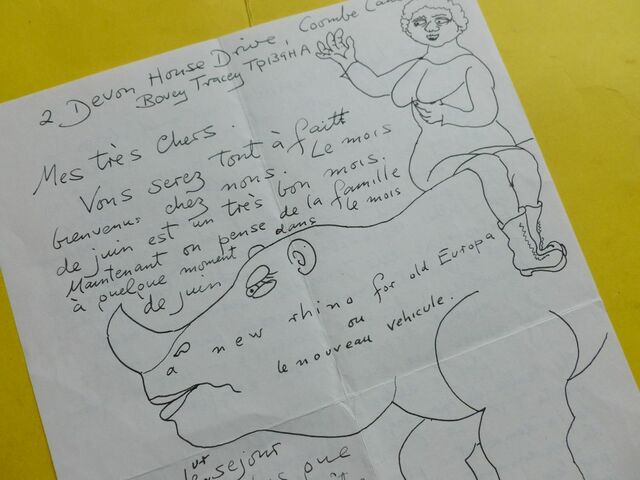 2 Devon House Drive, Coombe
Bovey Tracey TP139HA
Mes très chers.
Vous serez tout à faitt
bienvenus chez nous. Le mois
de juin est un très bon mois.
Maintenant on pense de la famille
à quelque moment dans le mois
de juin
a new rhino for old Europa
ou
le nouveau vehicule.
sejour
que